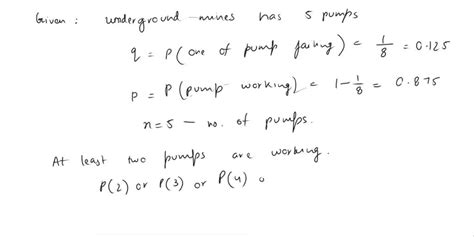 Given : underground mines has 5 pumps
q = P ( one of pump failing ) = 1/8 = 0.125
P = P ( pump working ) = 1 - 1/8 = 0.875
n = 5 — no. of pumps.
At least two pumps are working.
P(2) or P(3) or P(4) o